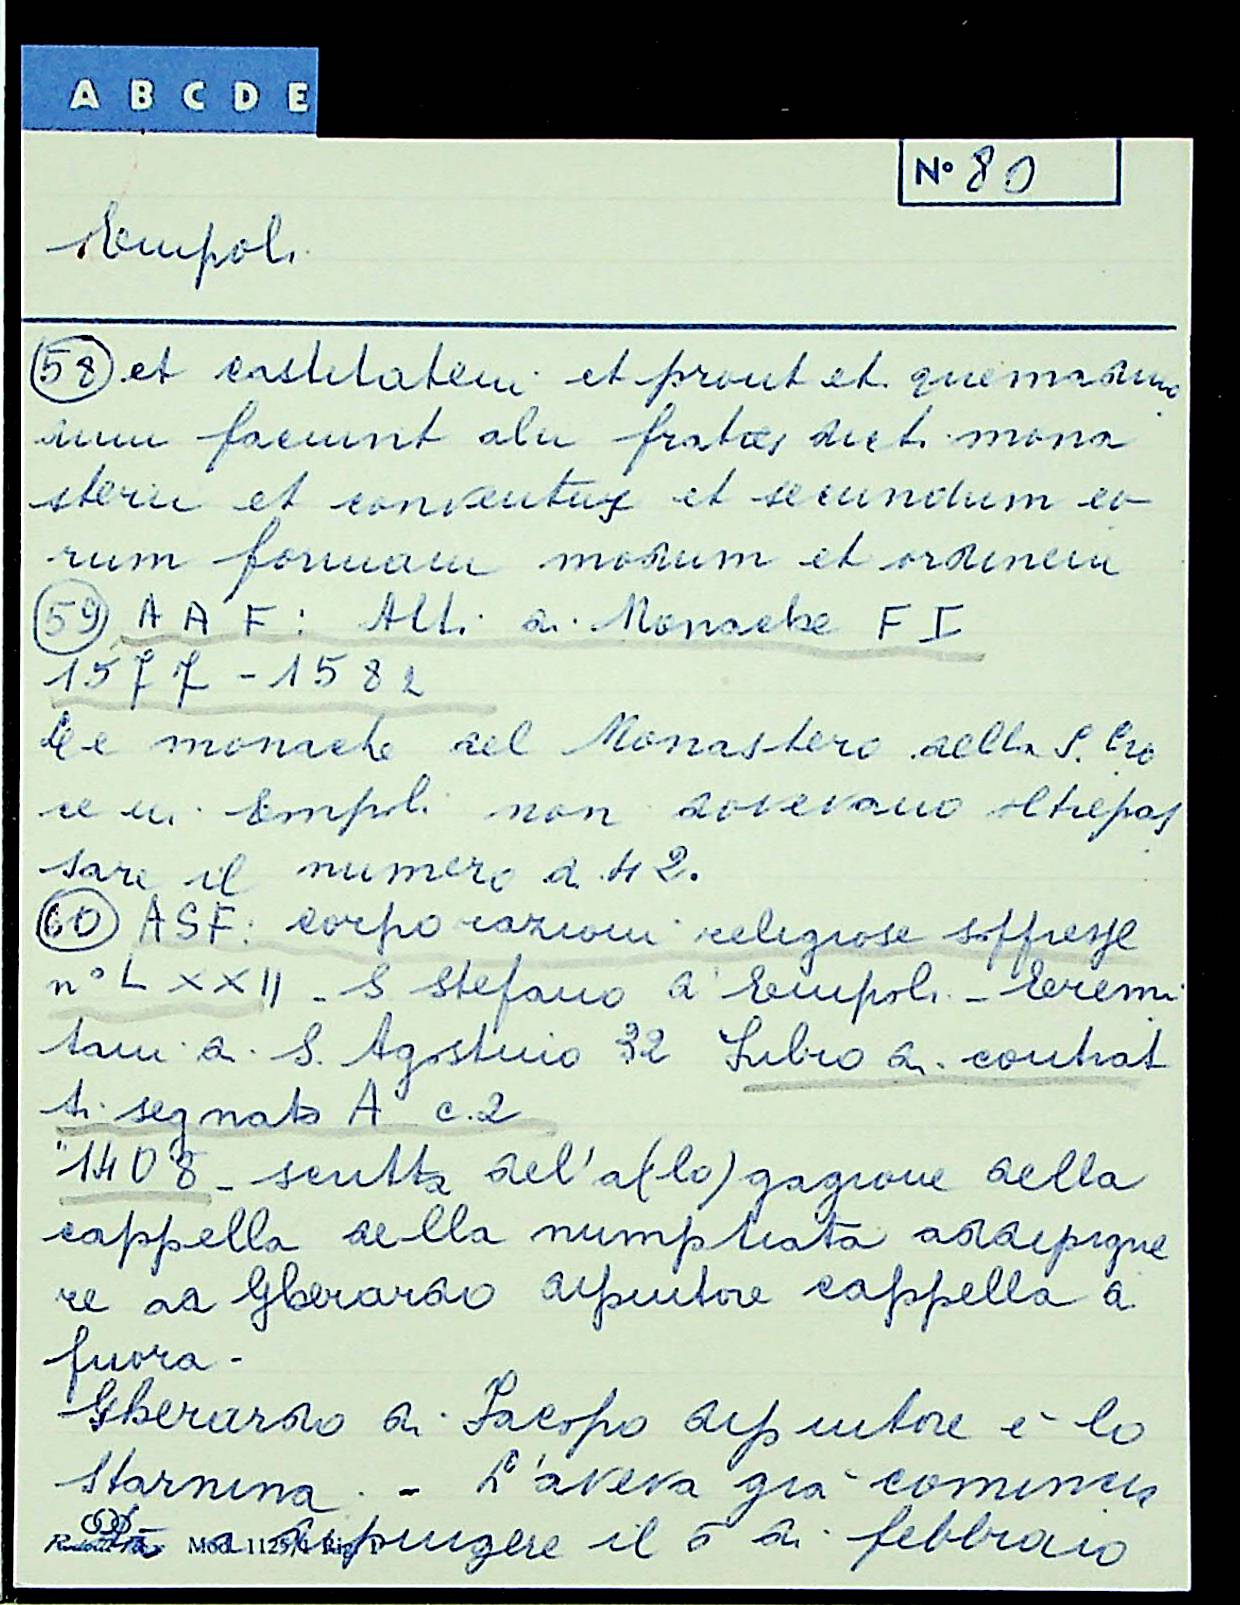 A B C D E
N° 80
Empoli
58 et castitatem et prout et quemadmo
dum faciunt alii fratres dicti mona
sterii et conventus et secundum eo
rum formam modum et ordinem
59 AAF: Atti di Monache FI
1577-1582
Le monache del Monastero della S. Cro
ce di Empoli non dovevano oltrepas
sare il numero di 42.
60 ASF: corporazioni religiose soppresse
n° LXXII - S Stefano di Empoli - Eremi
tani di S. Agostino 32 Libro di contrat
ti segnato A c.2
"1408 - scritta del'a(lo)gagione della
cappella della numptiata addipigne
re da Gherardo dipintore cappella di
fuora -
Gherardo di Jacopo dipintore è lo
Starnina. - L'aveva già comincia
a dipingere il 5 di febbraio
Mod. 1125/1 Rig. 1